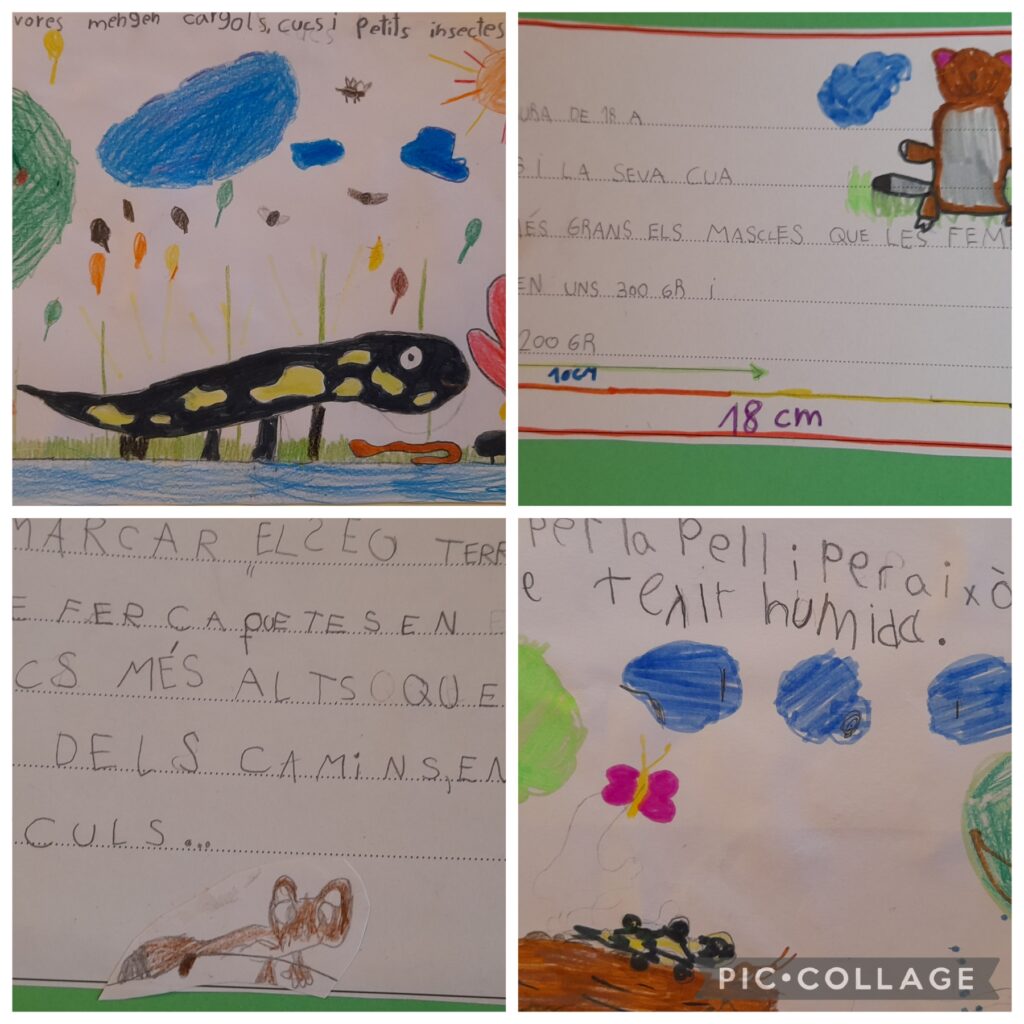 vores mengen cargols, cucs i petits insectes
UBA DE 18 A
I LA SEVA CUA
ÉS GRANS ELS MASCLES QUE LES FEM
EN UNS 300 GR i
200 GR
10cm
18 cm
MARCAR EL SEU TERR
E FER CAQUETES EN
CS MÉS ALTS O QUE
DELS CAMiNS, EN
CULS...
per la pell i per això
e tenir humida.
PIC•COLLAGE